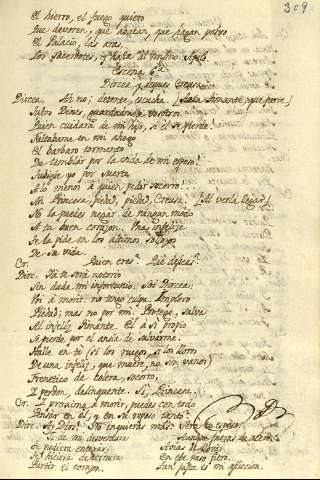 309
El hierro, el fuego quiero
Que devoren, que abatan, que hagan polvo
El Palacio, las aras,
Los Sacerdotes, y hasta el mismo Apolo
Escena 6.ª
Dircea, y luego Creusa.
Dircea. Ah no; detente, escucha. [Hasta Timante, que parte.]
Justos Dioses, guardadle vosotros.
Quien cuidará de mi hijo, si él se pierde!
Faltabame en mi ahogo
El barbaro tormento
De temblar por la vida de mi esposo!
Subiese yo por suerte
A lo menos à quien pedir socorro!
Ah Princesa, piedad, piedad, Creusa. [Al verla llegar.]
No la puedes negar de ningun modo
A tu buen corazon. Una infelize
Te la pide en los ultimos sollozos
De su vida.
Cr. Quien eres? Què deseas?
Dirc. Yà te será notorio
Sin duda mi infortunio. Soi Dircea:
Voi à morir: no tengo culpa. Imploro
Piedad; mas no por mi. Protege, salva
Al infeliz Timante. El à si propio
Se pierde, por el ansia de salvarme.
Halle en ti (si los ruegos, si los lloros
De una infeliz, que muere, no son vanos)
Frenetico de colera, socorro,
I perdon, delinquente. Si, Princesa.
Cr. I proxima à morir, puedes con todo
Pensar en él, y en su reposo tanto?
Dirc. Ay Dios! No inquieras mas.
Si de mi
de pudiera enterar,
Te hiciera de ternura
Partir el corazon.
Aunque fueras de acero,
en tràn fiero,
Tan justa es mi afliccion.